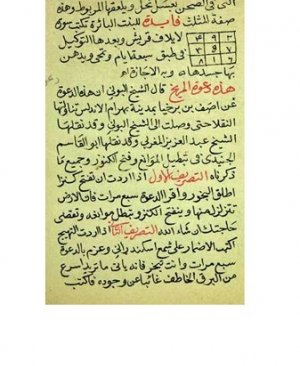 التى فى الصحن بعسل نحل ويلعقها المربوط وهذه
صفة المثلث فايدة للبنت البائرة تكتب سورة
لايلاف قريش وبعدها التوكيل
فى طبق سبعة ايام وتمحى ويدهن
بها جسدها وبه الاجازة اهـ
٤ ٩ ٢
٣ ٥ ٧
٨ ١ ٦
هذه دعوة المريخ قال الشيخ البونى ان هذه الدعوة
عن اصف بن برخيا مدينة بهرام الاندلس نانى
حتى وصلت الى الشيخ البونى وقد نقلها
الشيخ عبد العزيز المغربى وقد نقلها ابو القاسم
الجنيدى فى تبطيل الموانع وفتح الكنوز وجميع ما
ذكرناه التصريف الاول اذا اردت ان تفتح كنزا
اطلق البخور واقرا الدعوة سبع مرات فان الارض
تتزلزل منها وينفتح الكنز وتبطل موانعه وتقضى
حاجتك ان شاء الله التصريف الثانى اذا اردت التهييج
اكتب الاضمار على شمع اسكندرانى وعزم بالدعوة
سبع مرات وانت تبخر فانه ياتى ما تريد اسرع
من البرق الخاطف غائبا عن وجوده فاكتب